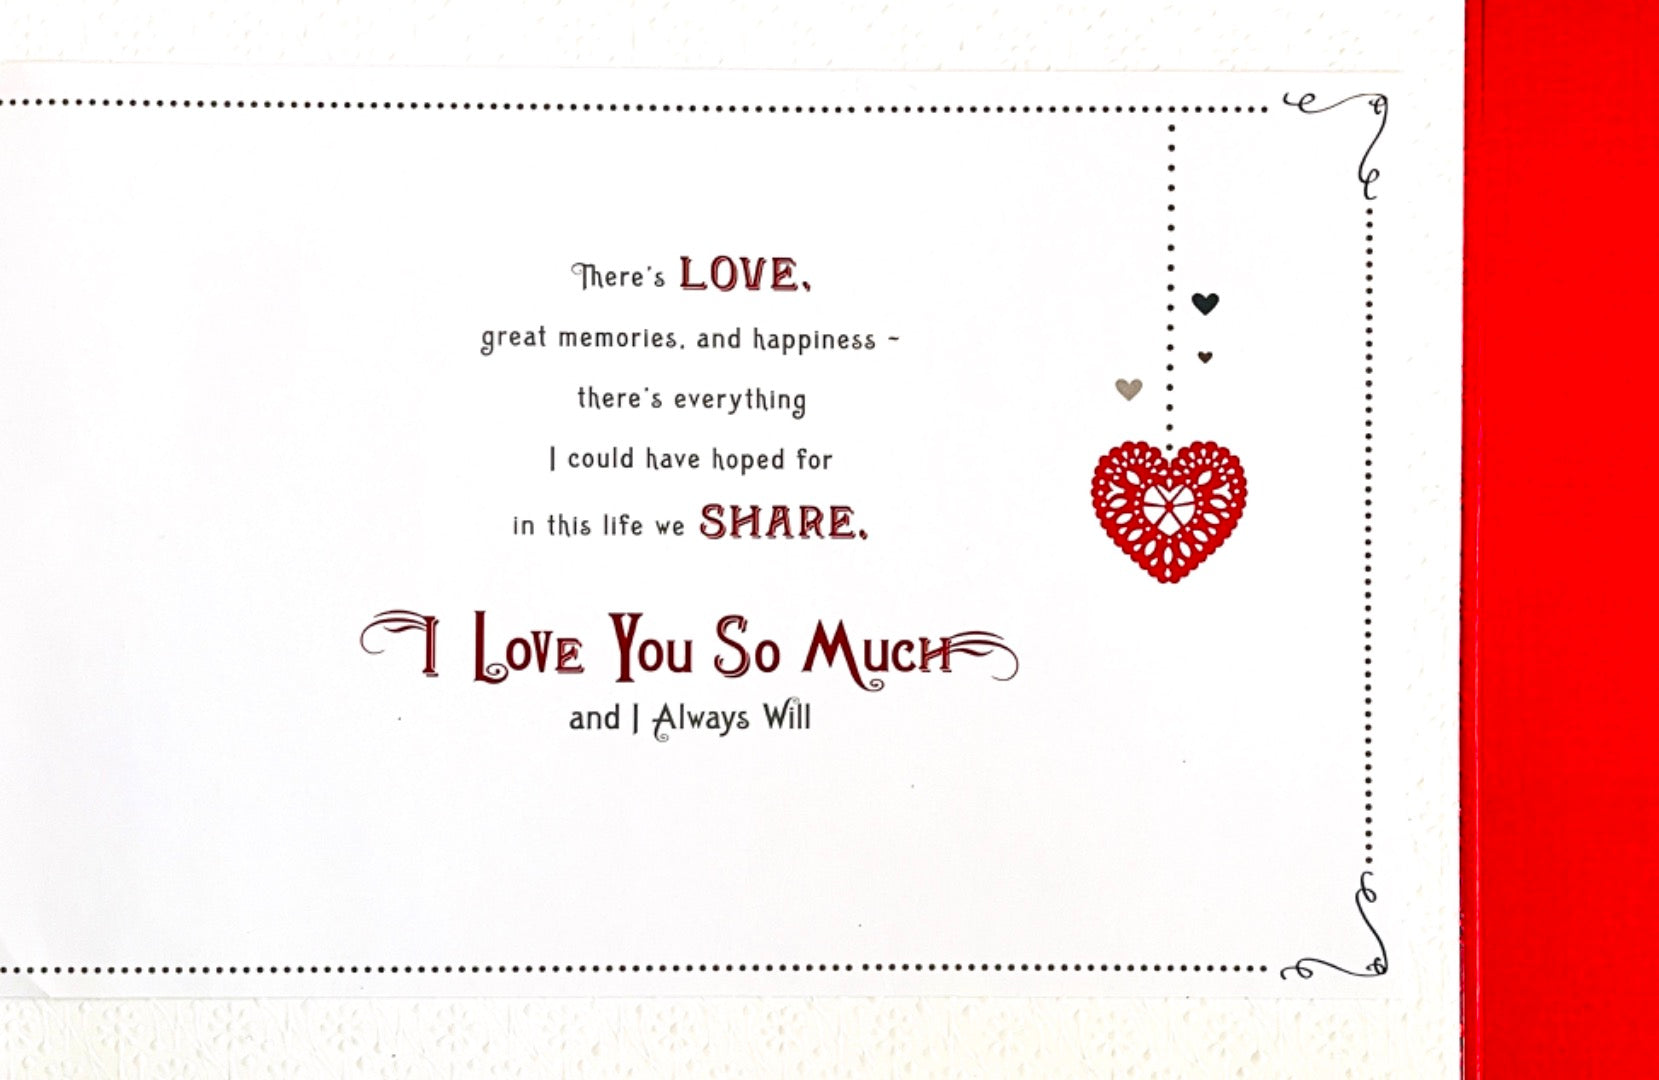 There's LOVE,
great memories, and happiness ~
there's everything
I could have hoped for
in this life we SHARE.
I Love You So Much
and I Always Will